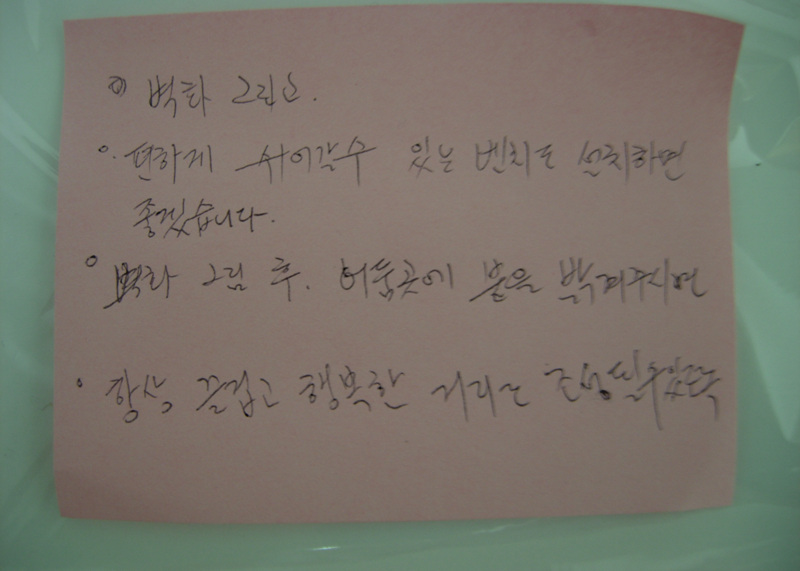 벽화 그리고.
편하게 쉬어갈수 있는 벤치도 설치하면
좋겠습니다.
벽화 그림 후. 어둠곳에 불을 밝혀주시면
항상 즐겁고 행복한 거리로 조성될수있도록